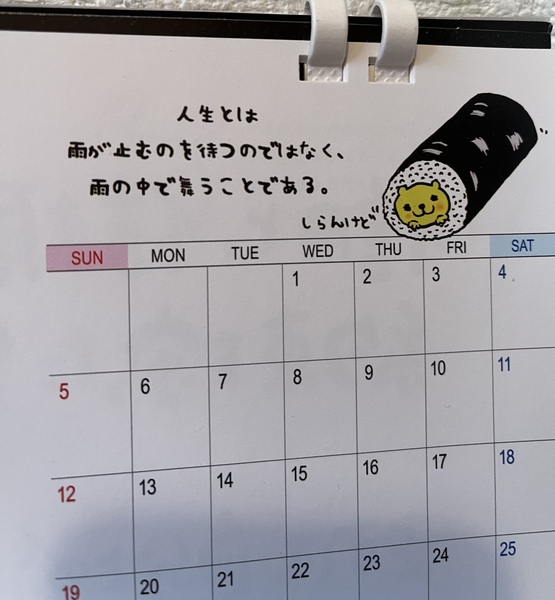 人生とは
雨が止むのを待つのではなく、
雨の中で舞うことである。
しらんけど
SUN MON TUE WED THU FRI SAT
1 2 3 4
5 6 7 8 9 10 11
12 13 14 15 16 17 18
19 20 21 22 23 24 25